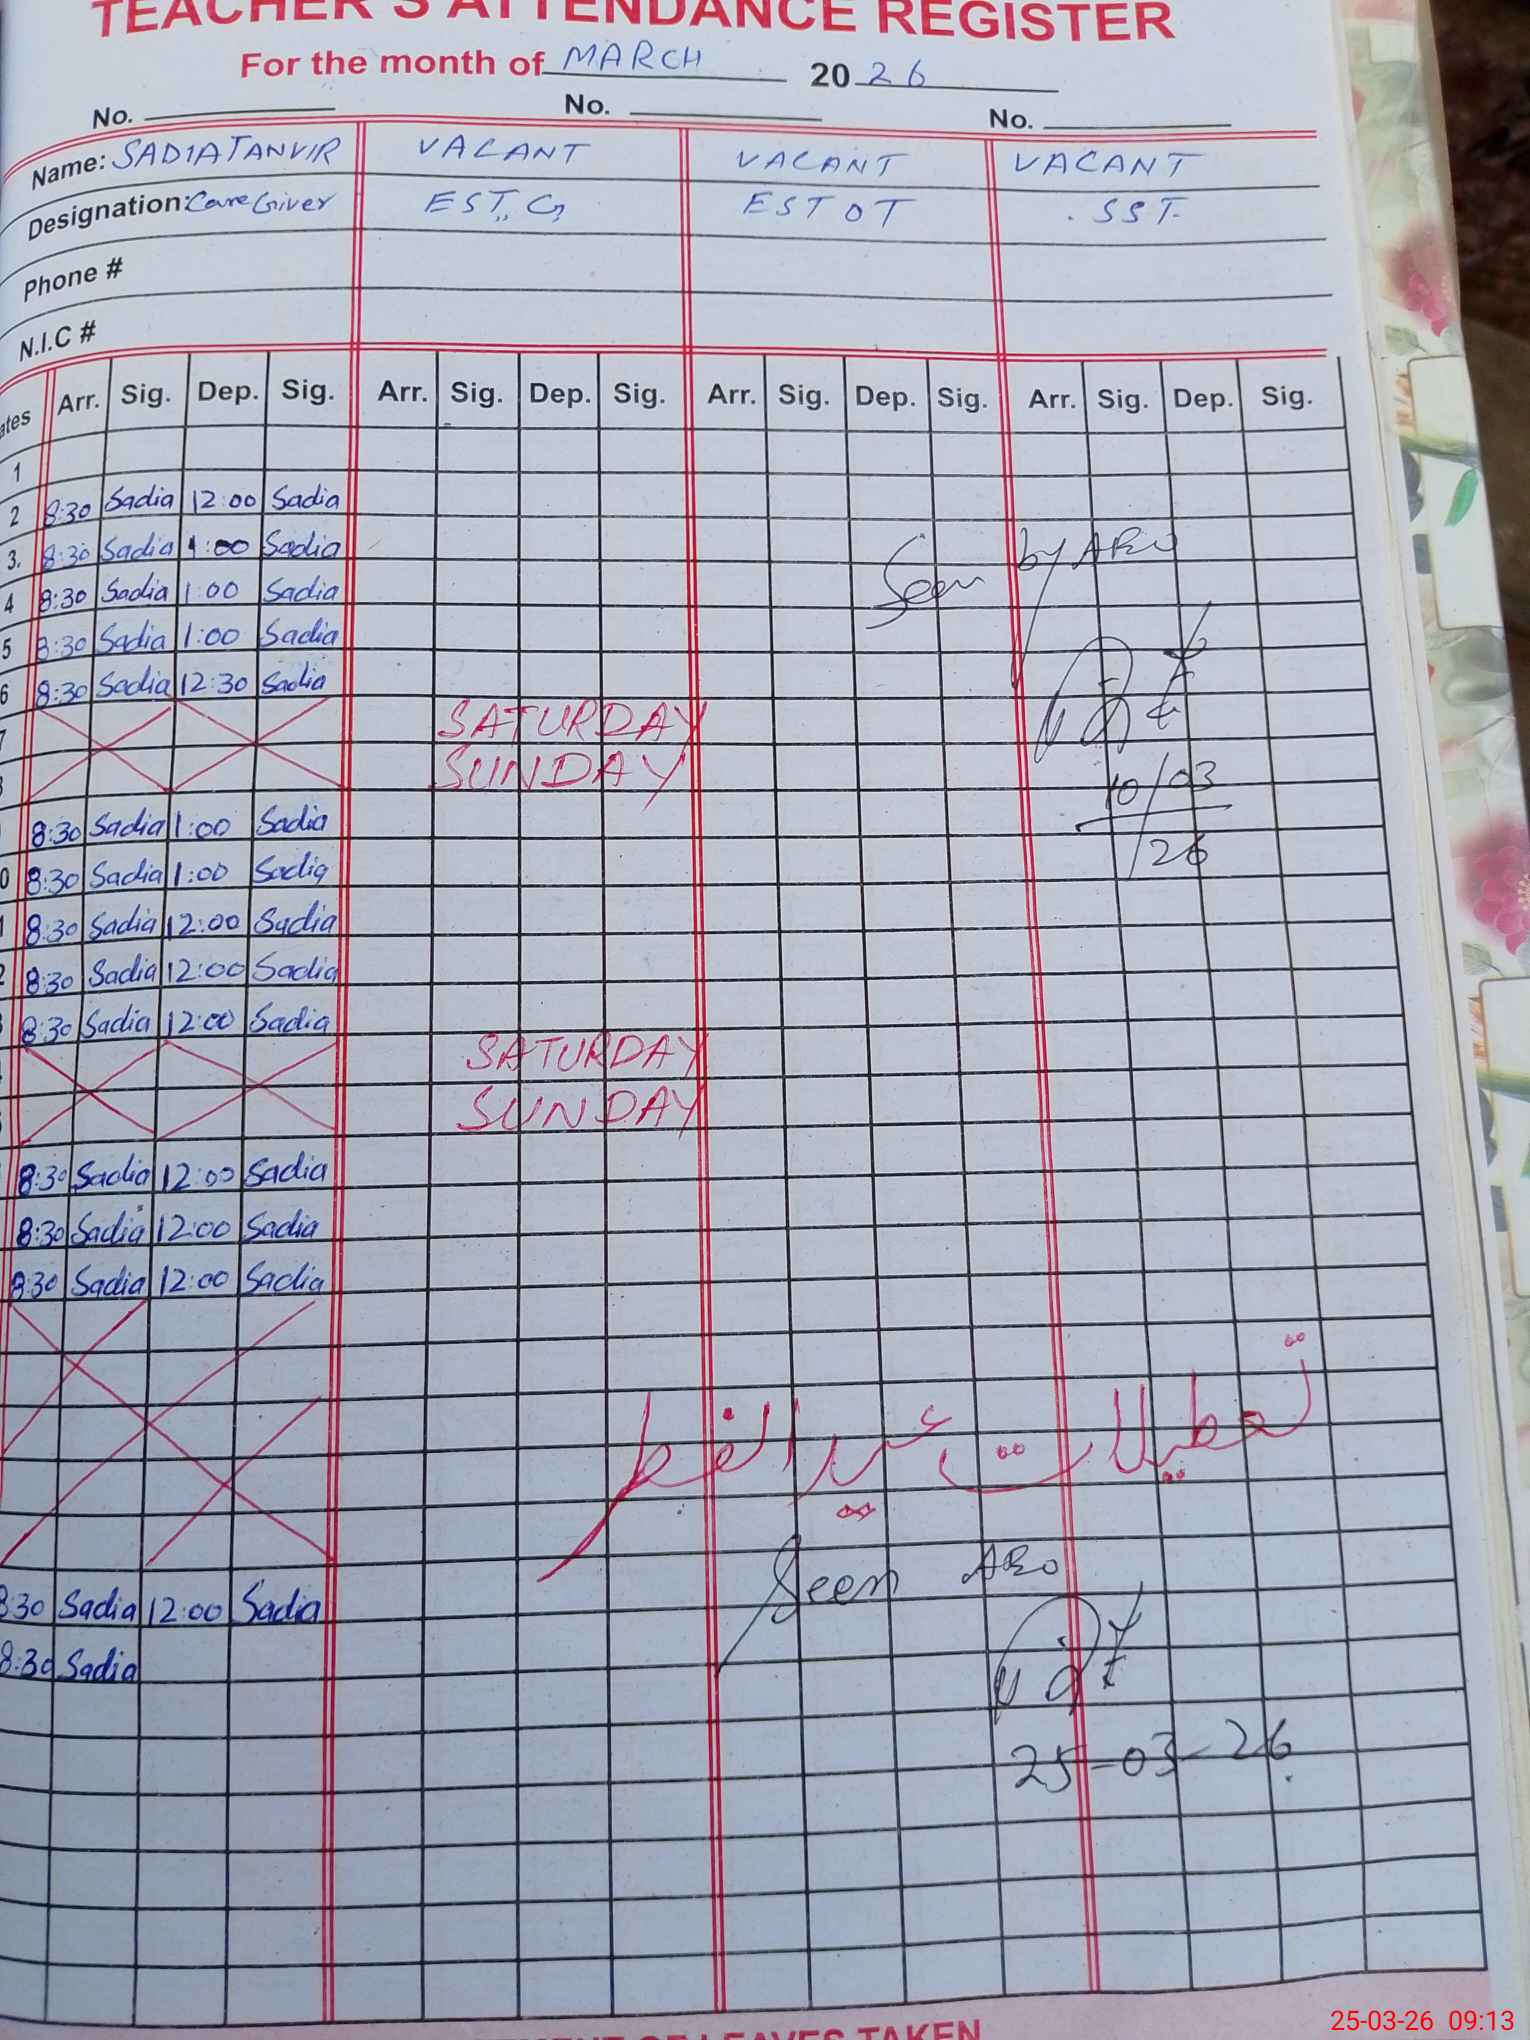 TEACHER'S ATTENDANCE REGISTER
For the month of MARCH 2026
No. No. No.
Name: SADIA TANVIR VACANT VACANT VACANT
Designation: Care Giver EST,, G EST OT SST
Phone #
N.I.C #
ates Arr. Sig. Dep. Sig. Arr. Sig. Dep. Sig. Arr. Sig. Dep. Sig. Arr. Sig. Dep. Sig.
1
2 8:30 Sadia 12:00 Sadia
3. 8:30 Sadia 1:00 Sadia
Seen by AEO
4 8:30 Sadia 1:00 Sadia
5 8:30 Sadia 1:00 Sadia
6 8:30 Sadia 12:30 Sadia
7 SATURDAY
SUNDAY
10/03
8:30 Sadia 1:00 Sadia
26
0 8:30 Sadia 1:00 Sadia
1 8:30 Sadia 12:00 Sadia
2 8:30 Sadia 12:00 Sadia
3 8:30 Sadia 12:00 Sadia
SATURDAY
SUNDAY
8:30 Sadia 12:00 Sadia
8:30 Sadia 12:00 Sadia
8:30 Sadia 12:00 Sadia
تعطیلات عید الفطر
Seen AEO
8:30 Sadia 12:00 Sadia
8:30 Sadia
25-03-26
LEAVES TAKEN
25-03-26 09:13